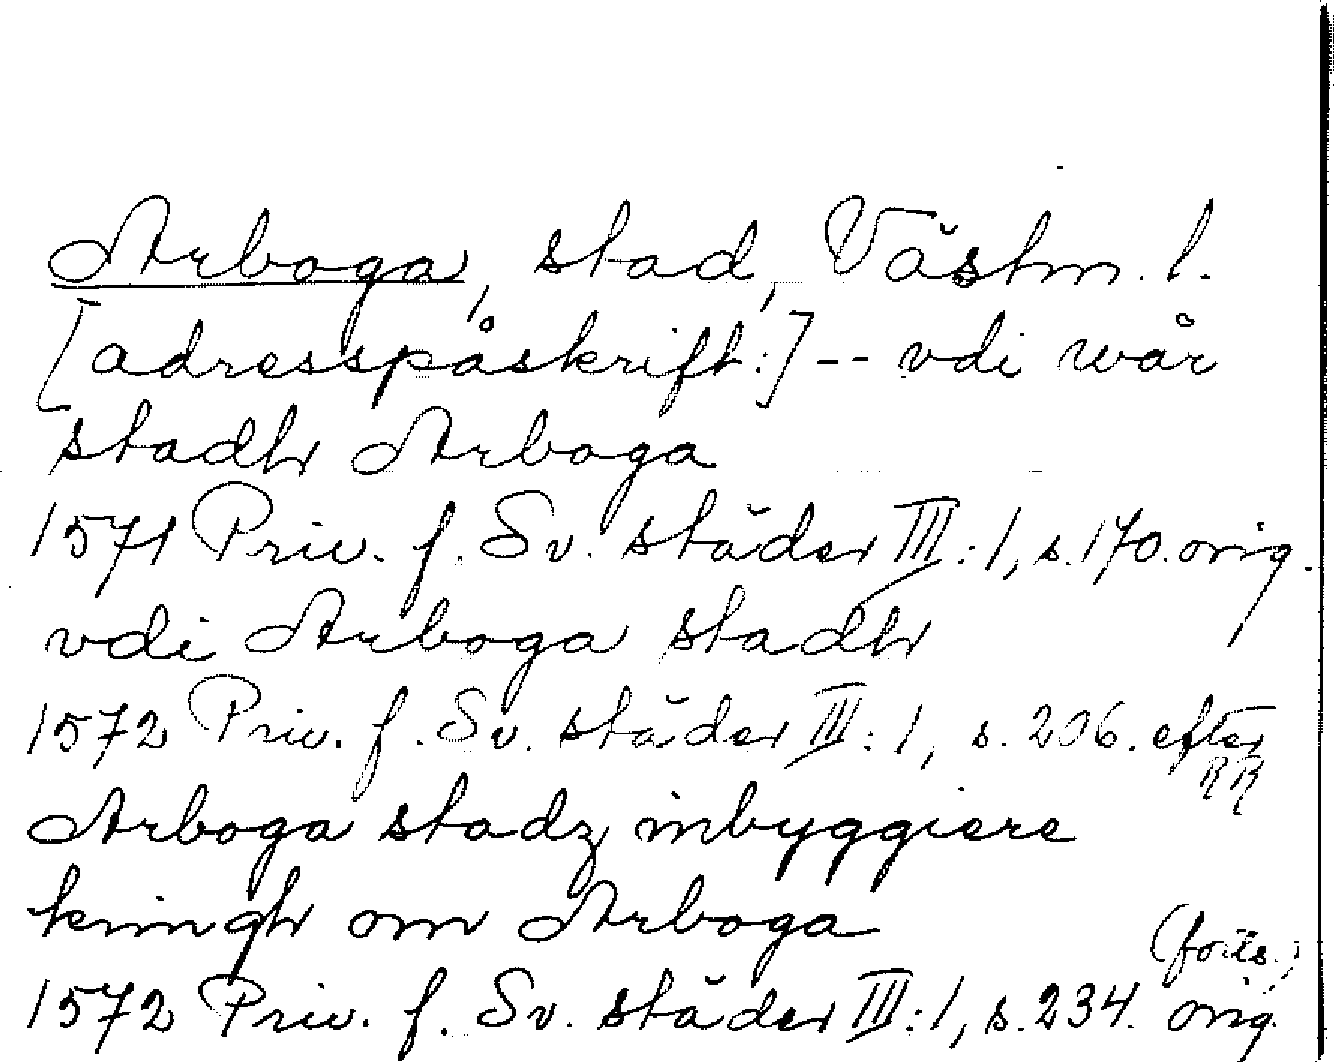 Arboga, stad, Västm. l.
[adresspåskrift:] -- vdi wår
stadh Arboga
1571 Priv. f. Sv. städer III:1, s. 170. orig.
vdi Arboga stadh
1572 Priv. f. Sv. städer III:1, s. 206. efter
RR
Arboga stadz inbyggiere
kringh om Arboga
(forts.)
1572 Priv. f. Sv. städer III:1, s. 234. orig.